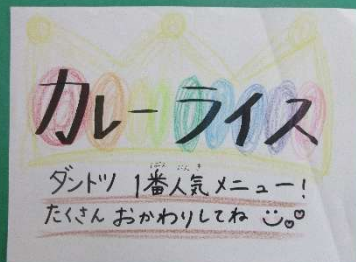 カレーライス
ダントツ 1番人気メニュー!
たくさん おかわりしてね